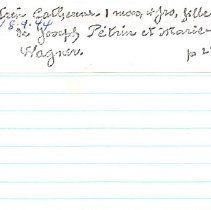 Catherine. 1 mois, fille
8.4.44
de Joseph Pétrin et Marie
Wagner. p 2